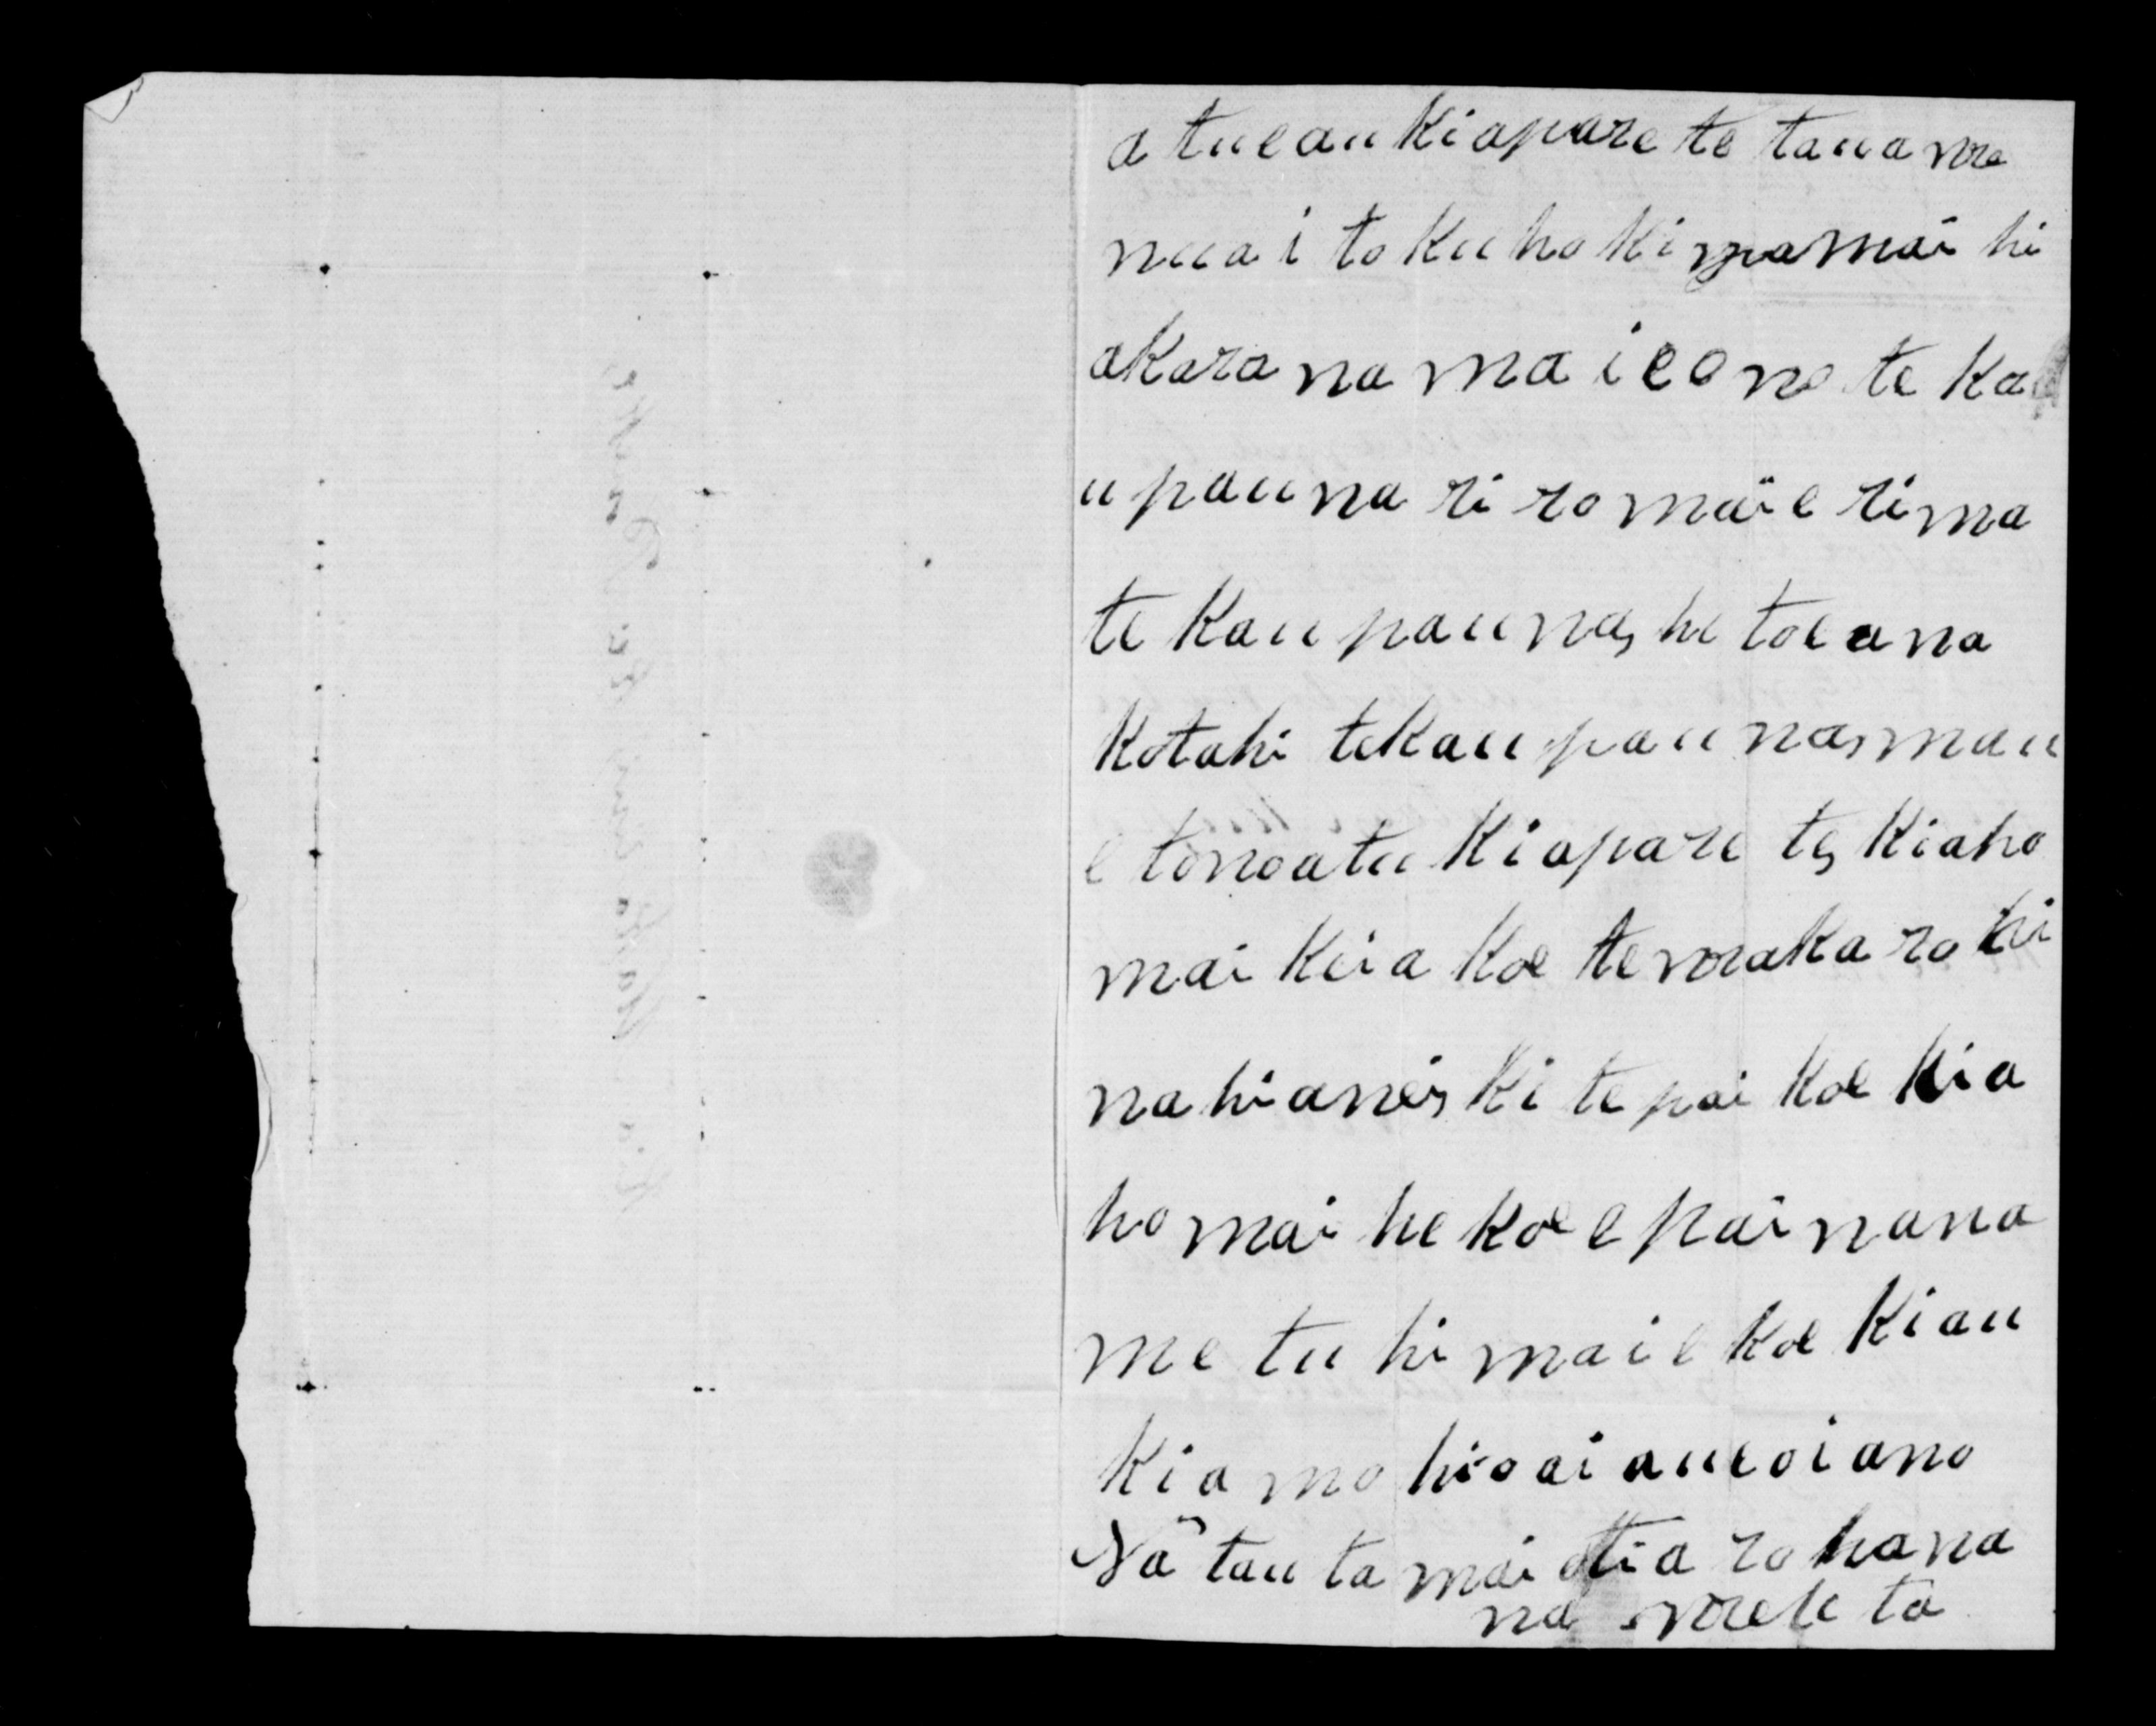 a tueau kiaparete tauawe
nuai tokuhokingamai hi
akarana mai eono teka
u pauna riro mai e rima
te kau pauna, he toeana
kotahi tekau pauna, mau
e tonoatu kiaparete, kiaho
mai kia koe tewakarohi
nahianei, ki te pai koe kia
homai he koe e pai nana
me tuhi mai e koe kiau
kia mohioai aueoiano
Nā tau tamai otia rohana
na wete ta